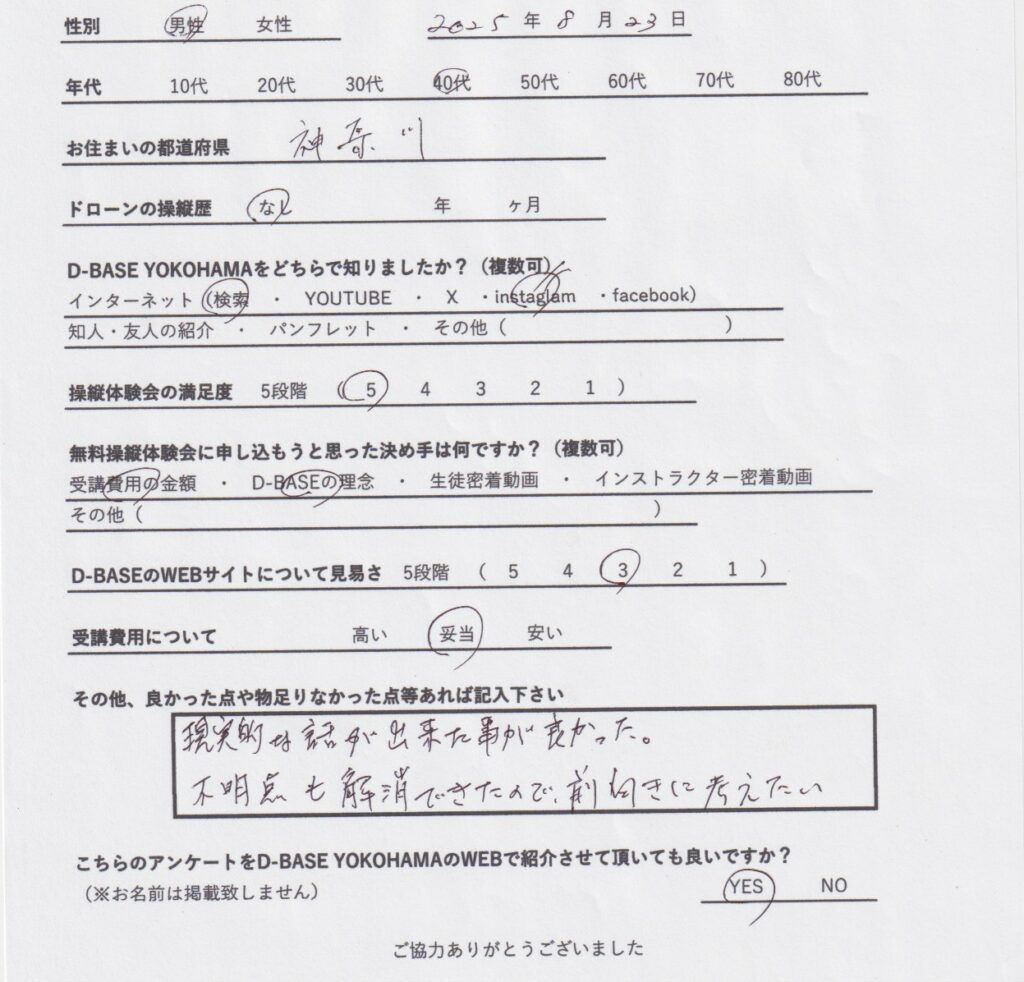 性別 男性 女性 2025年8月23日
年代 10代 20代 30代 40代 50代 60代 70代 80代
お住まいの都道府県 神奈川
ドローンの操縦歴 なし 年 ヶ月
D-BASE YOKOHAMAをどちらで知りましたか？（複数可）
インターネット（検索 ・ YOUTUBE ・ X ・instaglam ・facebook）
知人・友人の紹介 ・ パンフレット ・ その他（ ）
操縦体験会の満足度 5段階 （ 5 4 3 2 1 ）
無料操縦体験会に申し込もうと思った決め手は何ですか？（複数可）
受講費用の金額 ・ D-BASEの理念 ・ 生徒密着動画 ・ インストラクター密着動画
その他（ ）
D-BASEのWEBサイトについて見易さ 5段階 （ 5 4 3 2 1 ）
受講費用について 高い 妥当 安い
その他、良かった点や物足りなかった点等あれば記入下さい
現実的な話が出来た事が良かった。
不明点も解消できたので、前向きに考えたい
こちらのアンケートをD-BASE YOKOHAMAのWEBで紹介させて頂いても良いですか？
（※お名前は掲載致しません） YES NO
ご協力ありがとうございました